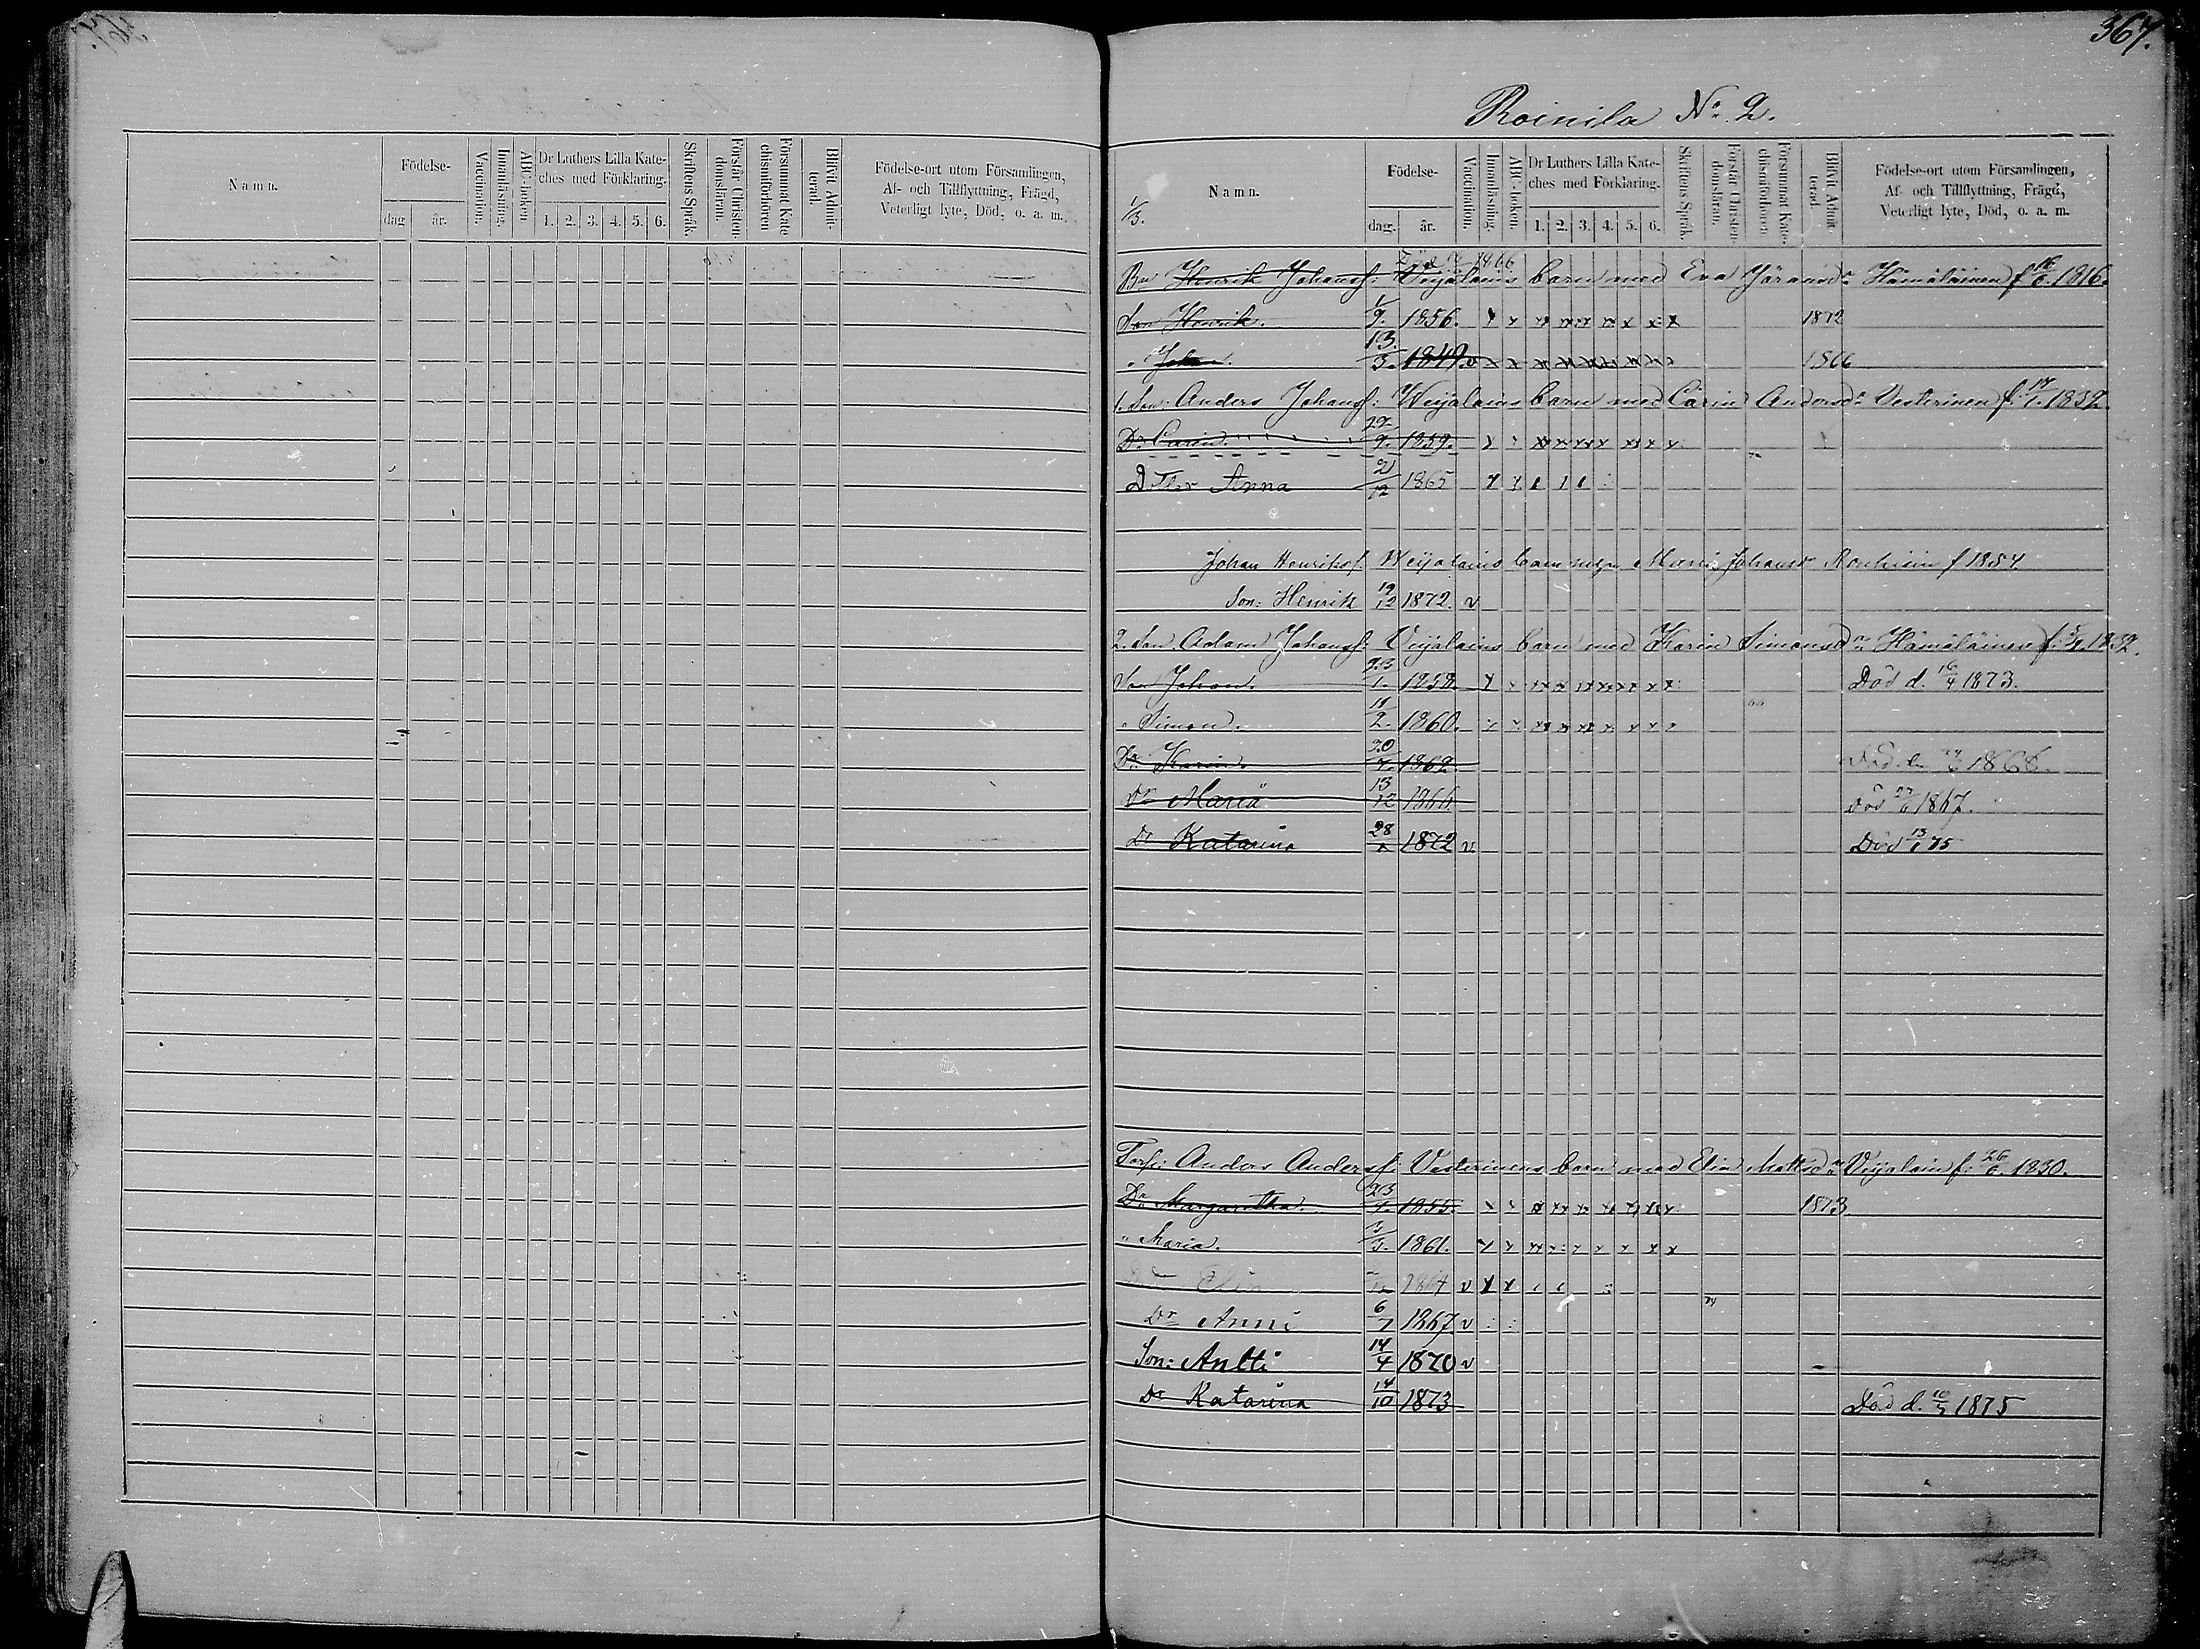 367.
Roinila No 2.
Namn.
Födelse-
dag
år.
Vaccination.
Innanläsning.
ABC-boken.
Dr Luthers Lilla Kate-
ches med Förklaring.
1. 2. 3. 4. 5. 6.
Skriftens Språk.
Förstår Christen-
domsläran.
Försummat Kate-
chismiförhören
Blifvit Admit-
terad.
Födelse-ort utom Församlingen,
Af- och Tillflyttning, Frägd,
Veterligt lyte, Död, o. a. m.
Namn.
1/3.
Födelse-
dag.
år.
Vaccination.
Innanläsning.
ABC-boken.
Dr Luthers Lilla Kate-
ches med Förklaring.
1. 2. 3. 4. 5. 6.
Skriftens Språk.
Förstår Christen-
domsläran.
Försummat Kate-
chismiförhören
Blifvit Admit-
terad.
Födelse-ort utom Församlingen,
Af- och Tillflyttning, Frägd,
Veterligt lyte, Död, o. a. m.
Henrik Johansf: Veijalains barn med Eva Göransd:r Hämäläinen f. 16/6. 1816.
Son Henrik. 1/9. 1856. 1872
" Johan. 13/3. 1849. v 1866
1. Son: Anders Johansf: Weijalains barn med Carin Andersd:r Vesterinen f. 17/1. 1832.
D:r Carin. 22/9. 1859.
Dotter Anna 2/12 1865
Johan Henriksf. Weijalains barn med Maria Johansd:r Ronkisin f 1854
Son: Henrik 19/12 1872. v
2. Son. Adam Johansf: Veijalains barn med Karin Simonsd:r Hämäläinen f: 5/9 1832.
Son Johan. 23/1. 1858. Död d. 16/4 1873.
" Simon. 11/2. 1860.
D:r Karin. 20/7. 1862. Död d. 1868.
D:r Maria 13/12 1866 Död 27/6 1867.
D:r Katarina 28/ 1872 v Död 13/1 75
Anders Andersf: Vesterinens barn med Elin Mattsd:r Veijalain f: 26/6. 1830.
D:r Margaretha. 23/9. 1855. 1873
" Maria. 1861.
Elin 1864 v
D:r Anni 6/7 1867. v
Son: Antti 14/4 1870 v
D:r Katarina 14/10 1873 Död d. 10/3 1875